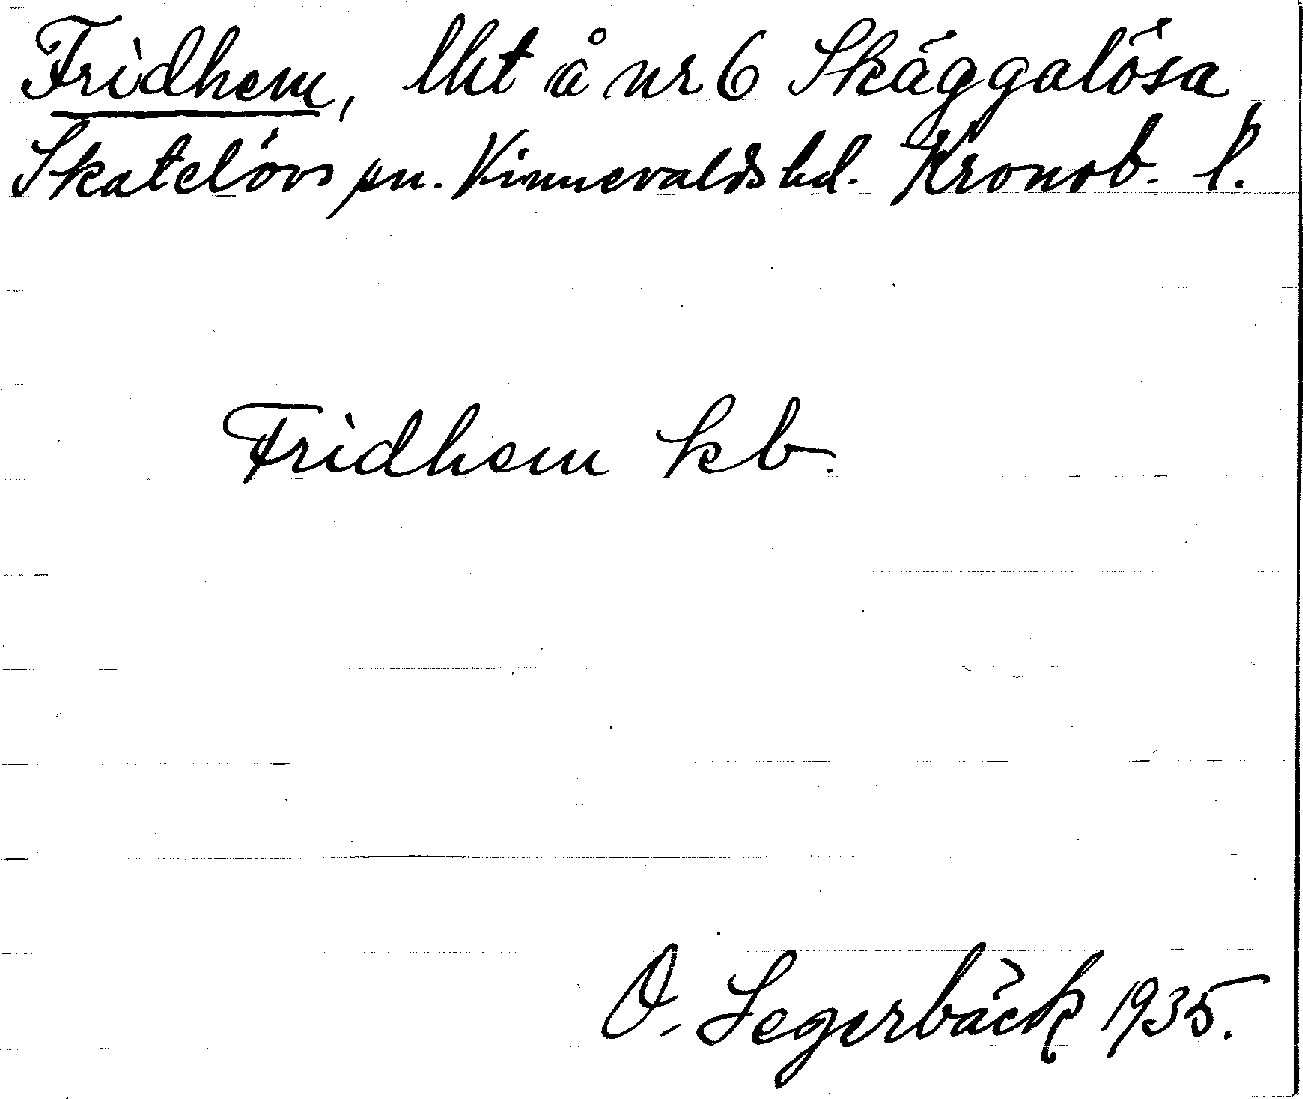 Fridhem, lht å nr 6 Skäggalösa
Skatelövs sn. Kinnevalds hd. Kronob. l.
Fridhem kb.
O. Segerbäck 1935.